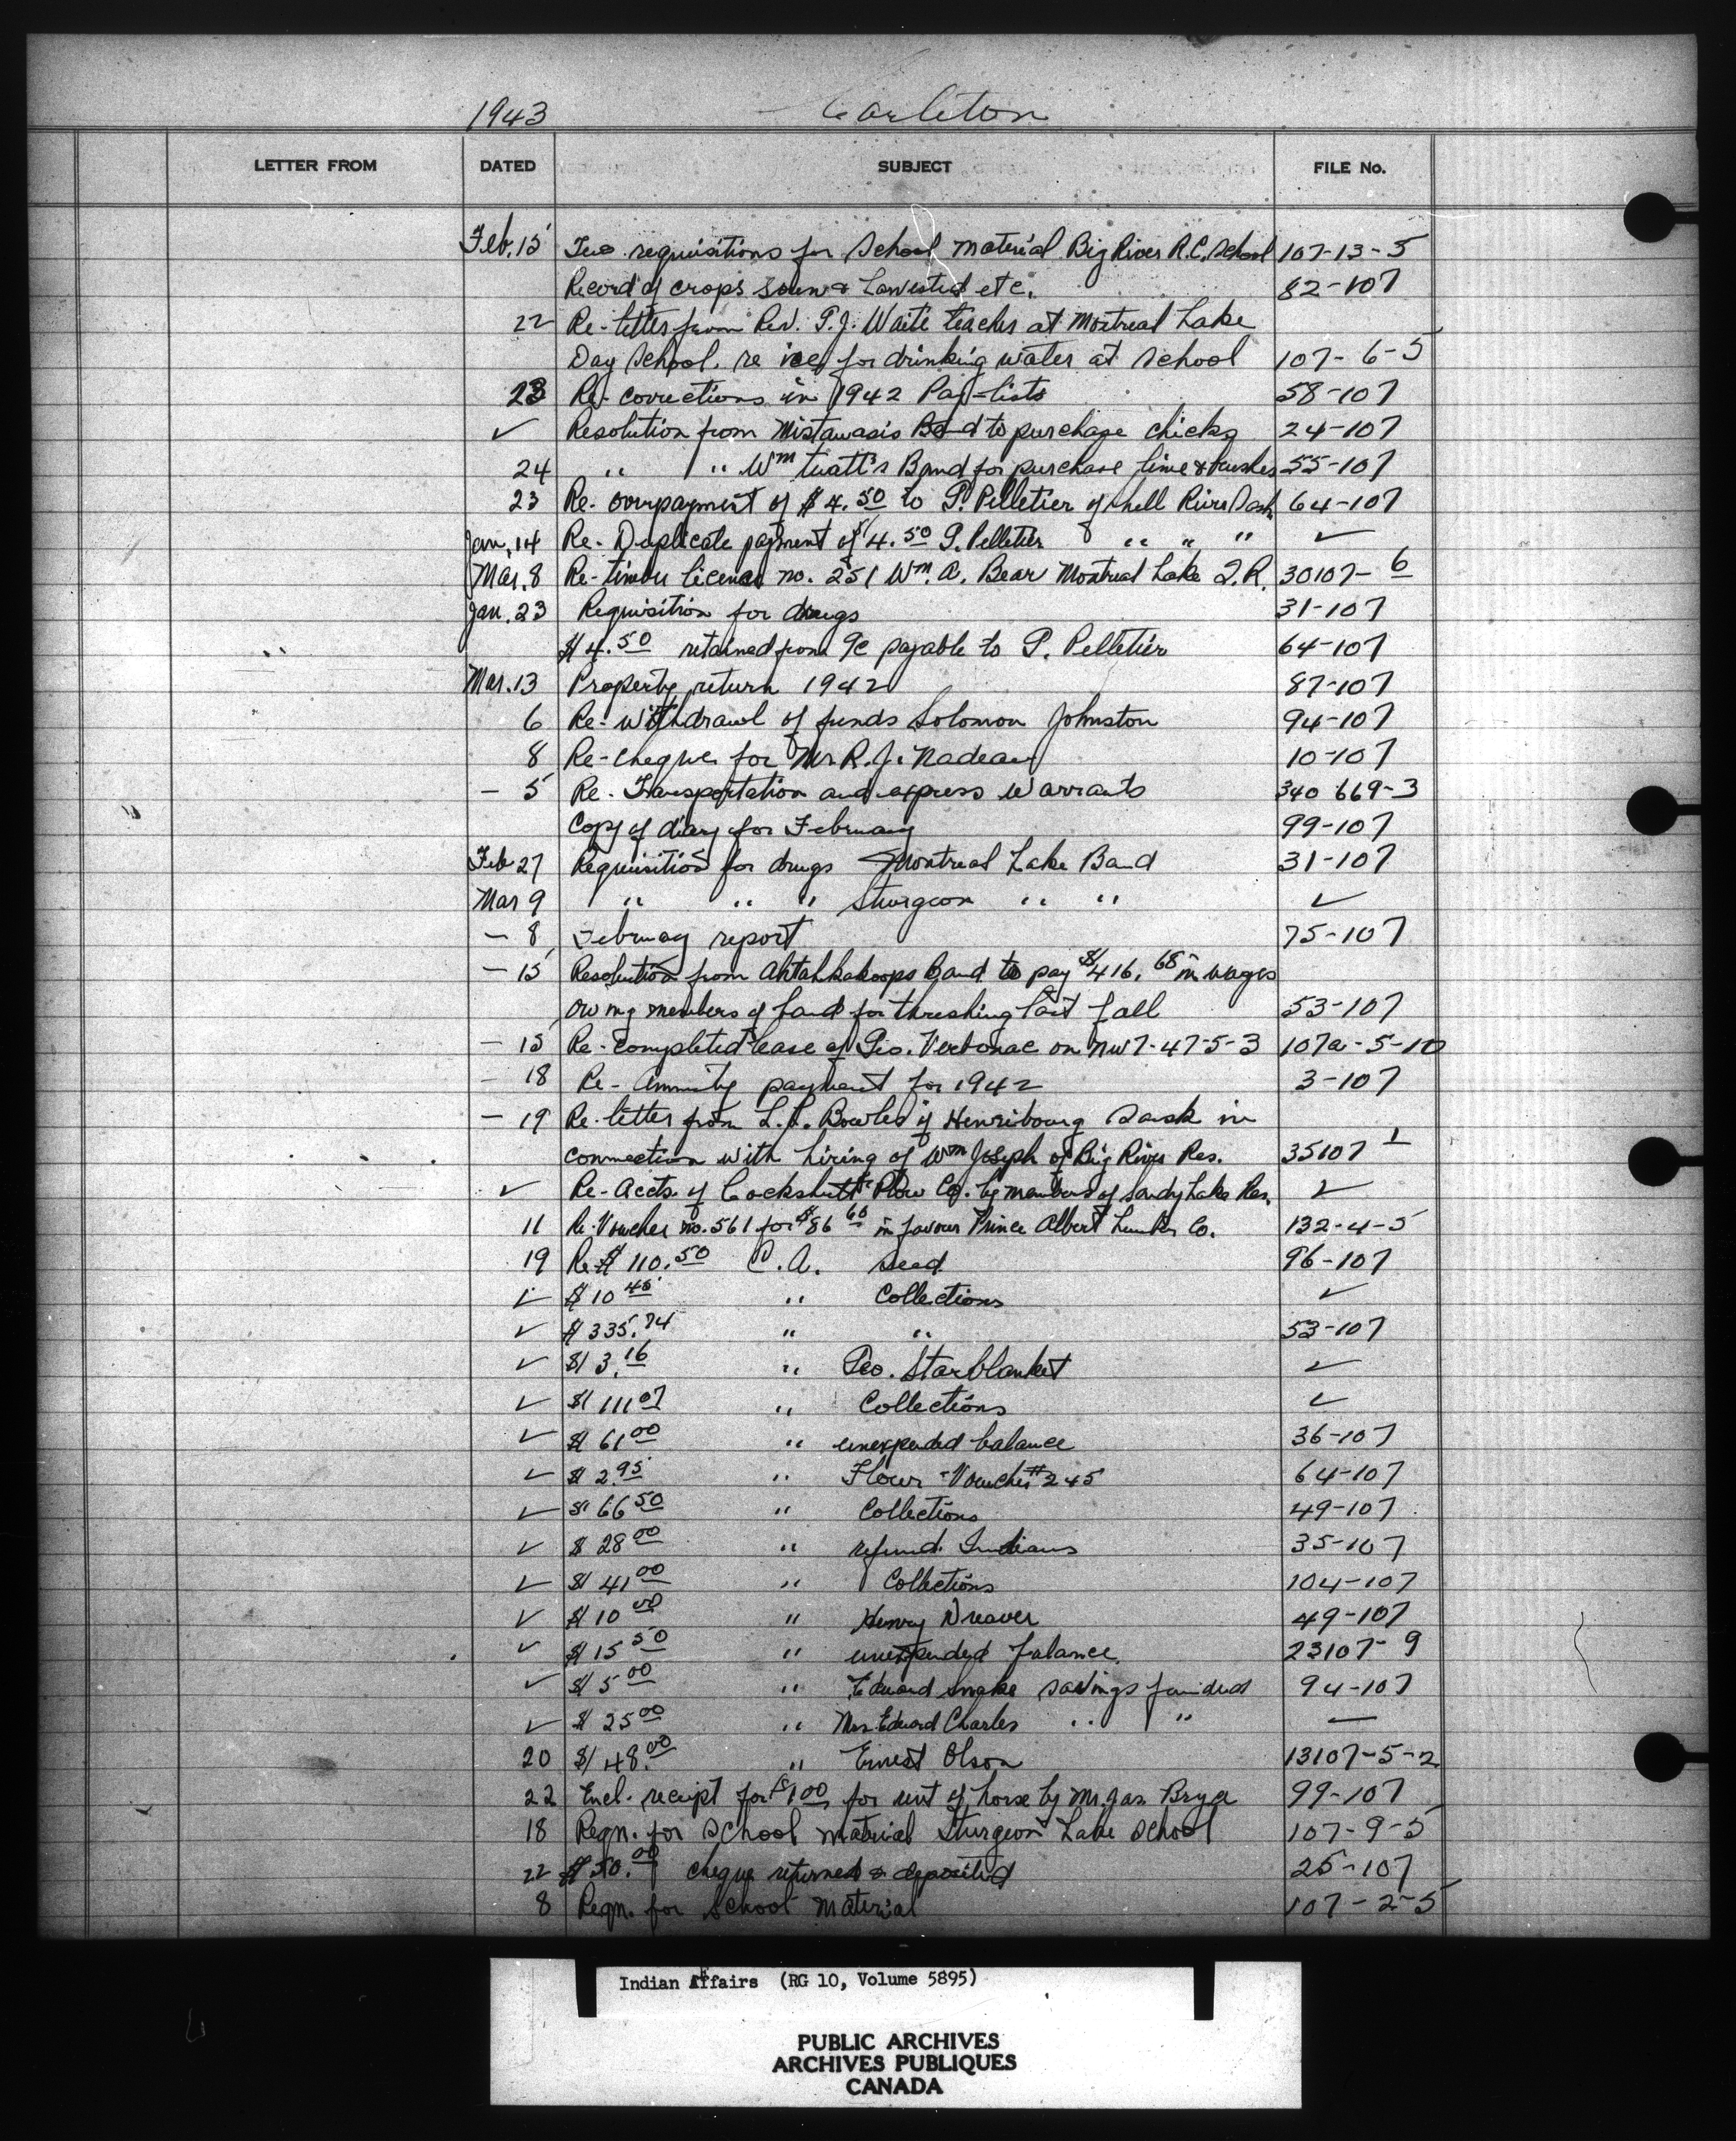 1943 Carleton
LETTER FROM DATED SUBJECT FILE No.
Feb. 15 Two requisitions for School material Big River R.C. School 107-13-5
Record of crops sown & harvested etc. 82-107
22 Re-letter from Rev. P.J. Waite teacher at Montreal Lake
Day School. re ice for drinking water at school 107-6-5
23 Re-corrections in 1942 Pay-lists 58-107
✓ Resolution from Mistawasis Band to purchase chicks 24-107
24 " " Wm Twatt's Band for purchase lime & brushes 55-107
23 Re-overpayment of $4.50 to P. Pelletier of Shell River Sask. 64-107
Jan. 14 Re-Duplicate payment of $4.50 P. Pelletier " " " ✓
Mar. 8 Re-timber licence no. 251 Wm. A. Bear Montreal Lake I.R. 30107-6
Jan. 23 Requisition for drugs 31-107
$4.50 retained from payable to P. Pelletier 64-107
Mar. 13 Property return 1942 87-107
6 Re-withdrawl of funds Solomon Johnston 94-107
8 Re-cheque for Mr. R.J. Nadeau 10-107
- 5 Re-Transportation and express Warrants 340 669-3
Copy of diary for February 99-107
Feb 27 Requisition for drugs Montreal Lake Band 31-107
Mar 9 " " " Sturgeon " " ✓
- 8 February report 75-107
- 15 Resolution from Ahtahkakoops Band to pay $416.68 in wages
owing members of band for threshing last fall 53-107
- 15 Re-completed lease of Geo. Verbonac on NW7-47-5-3 107a-5-10
- 18 Re-Annuity payment for 1942 3-107
- 19 Re-letter from L.L. Bowles of Henribourg Sask in
connection with hiring of Wm Joseph of Big River Res. 35107-1
✓ Re-Accts. of Cockshutt Plow Co. by members of Sandy Lake Res. ✓
11 Re-Voucher no. 561 for $86.60 in favour Prince Albert Lumber Co. 132-4-5
19 Re $110.50 C.A. seed 96-107
✓ $10 45 " Collections ✓
✓ $335.74 " " 53-107
✓ $13.16 " Geo. Starblanket ✓
✓ $111 07 " Collections ✓
✓ $61 00 " unexpended balance 36-107
✓ $2.95 " Flour-Voucher #245 64-107
✓ $66 50 " Collections 49-107
✓ $28 00 " refund Indians 35-107
✓ $41 00 " Collections 104-107
✓ $10 00 " Henry Dreaver 49-107
✓ $15 50 " unexpended balance 23107-9
✓ $5 00 " Edward Snake savings funded 94-107
✓ $25 00 " Mrs. Edward Charles " " —
20 $48.00 " Ernest Olson 13107-5-2
22 Encl. receipt for $1 00 for rent of horse by Mr. Jas. 99-107
18 Reqn. for School material Sturgeon Lake School 107-9-5
22 $50.00 cheque returned & deposited 25-107
8 Reqn. for School Material 107-2-5
Indian Affairs (RG 10, Volume 5895)
PUBLIC ARCHIVES
ARCHIVES PUBLIQUES
CANADA